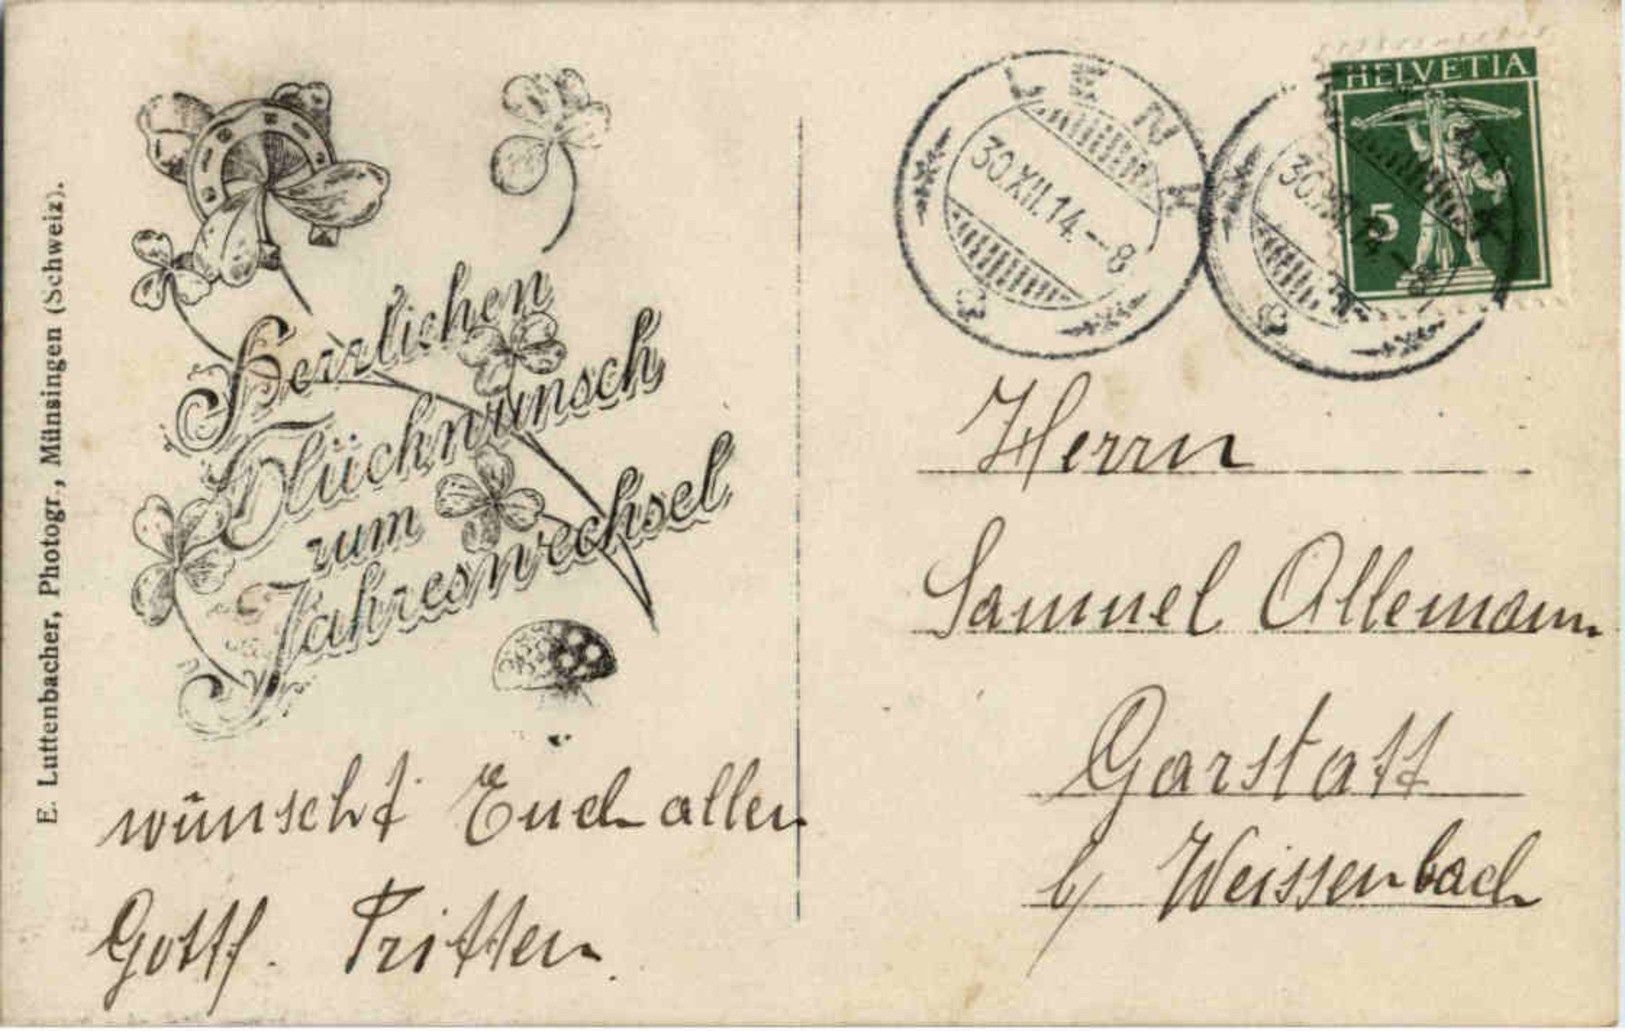 E. Luttenbacher, Photogr., Münsingen (Schweiz).
Herzlichen
Glückwunsch
zum
Jahreswechsel
wünscht Euch allen
Gottf. Tritten.
LENK
30.XII.14.–8
LENK
30.XII.14.–8
HELVETIA
5
Herrn
Samuel Allemann
Garstatt
b/ Weissenbach